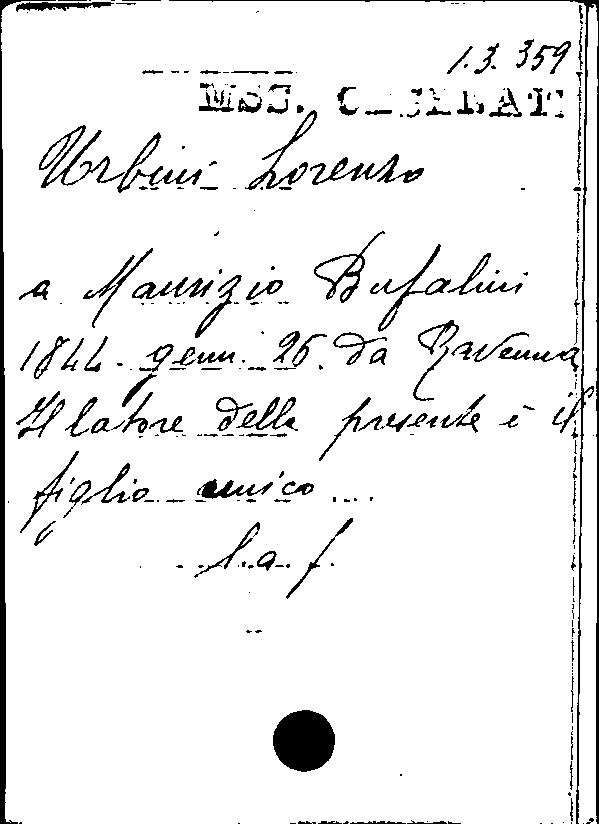 1.3.359
MSS.
Urbini Lorenzo
a Maurizio Bufalini
1844. genn. 26. da Ravenna
Il latore della presente è il
figlio amico ....
l. a. f.